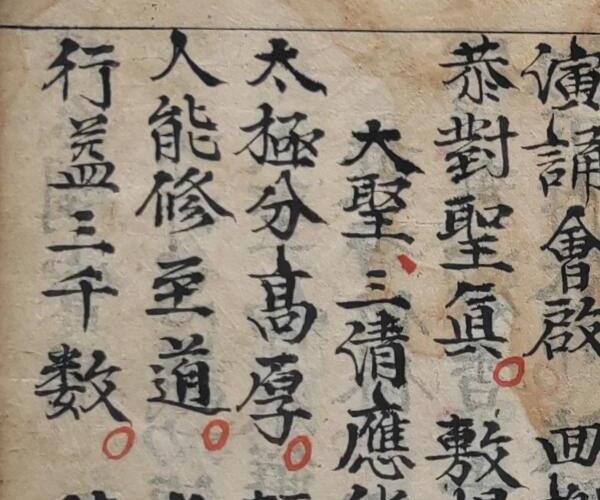 演誦會啟回
恭對聖眞敷
大聖三清應
太極分高厚
人能修至道
行盖三千数